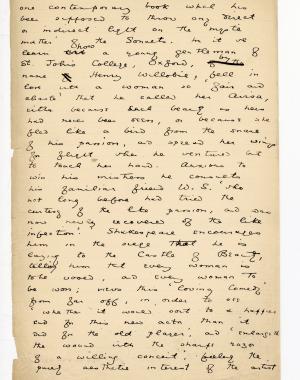 one contemporary book which has
been supposed to throw any direct
or indirect light on the mystic
matter of the Sonnets. In it we
learn how a young gentleman of
St. John's College, Oxford, by the
name Henry Willobie, fell in
love with a woman so fair and
chaste that he called her Avisa,
either because such beauty as hers
had never been seen, or because she
fled like a bird from the snare
of his passion, and spread her wings
for flight when he ventured but
to touch her hand. Anxious to
win his mistress he consults
his familiar friend W. S. 'who
not long before had tried the
curtesy of the like passion, and was
now newly recovered of the like
infection'. Shakespeare encourages
him in the siege that he is
laying to the Castle of Beauty,
telling him that every woman is
to be wooed, and every woman to
be won; views this 'loving Comedy'
from far off, in order to see
'whether it would sort to a happier
end for this new actor than it
did for the old player', and 'enlargeth
the wound with the sharpe razo
of a willing conceit', feeling the
purely aesthetic interest of the artist